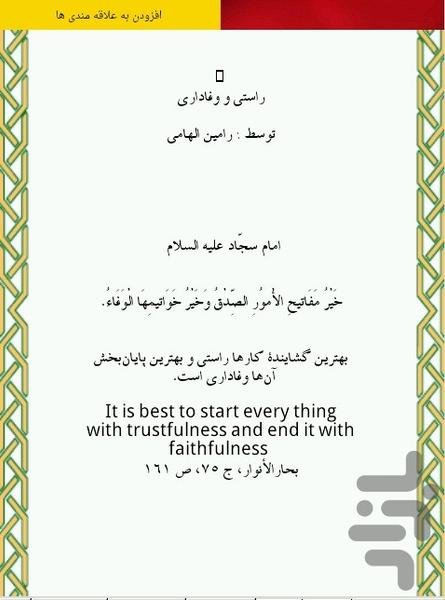 افزودن به علاقه مندی ها
راستی و وفاداری
توسط : رامین الهامی
امام سجّاد علیه السلام
خَیْرُ مَفَاتیحِ الأُمورُِ الصِّدْقُ وَخَیْرُ خَوَاتیمِهَا الْوَفَاءُ.
بهترین گشایندهٔ کارها راستی و بهترین پایان‌بخش
آن‌ها وفاداری است.
It is best to start every thing
with trustfulness and end it with
faithfulness
بحارالأنوار، ج ۷۵، ص ۱۶۱
بازار